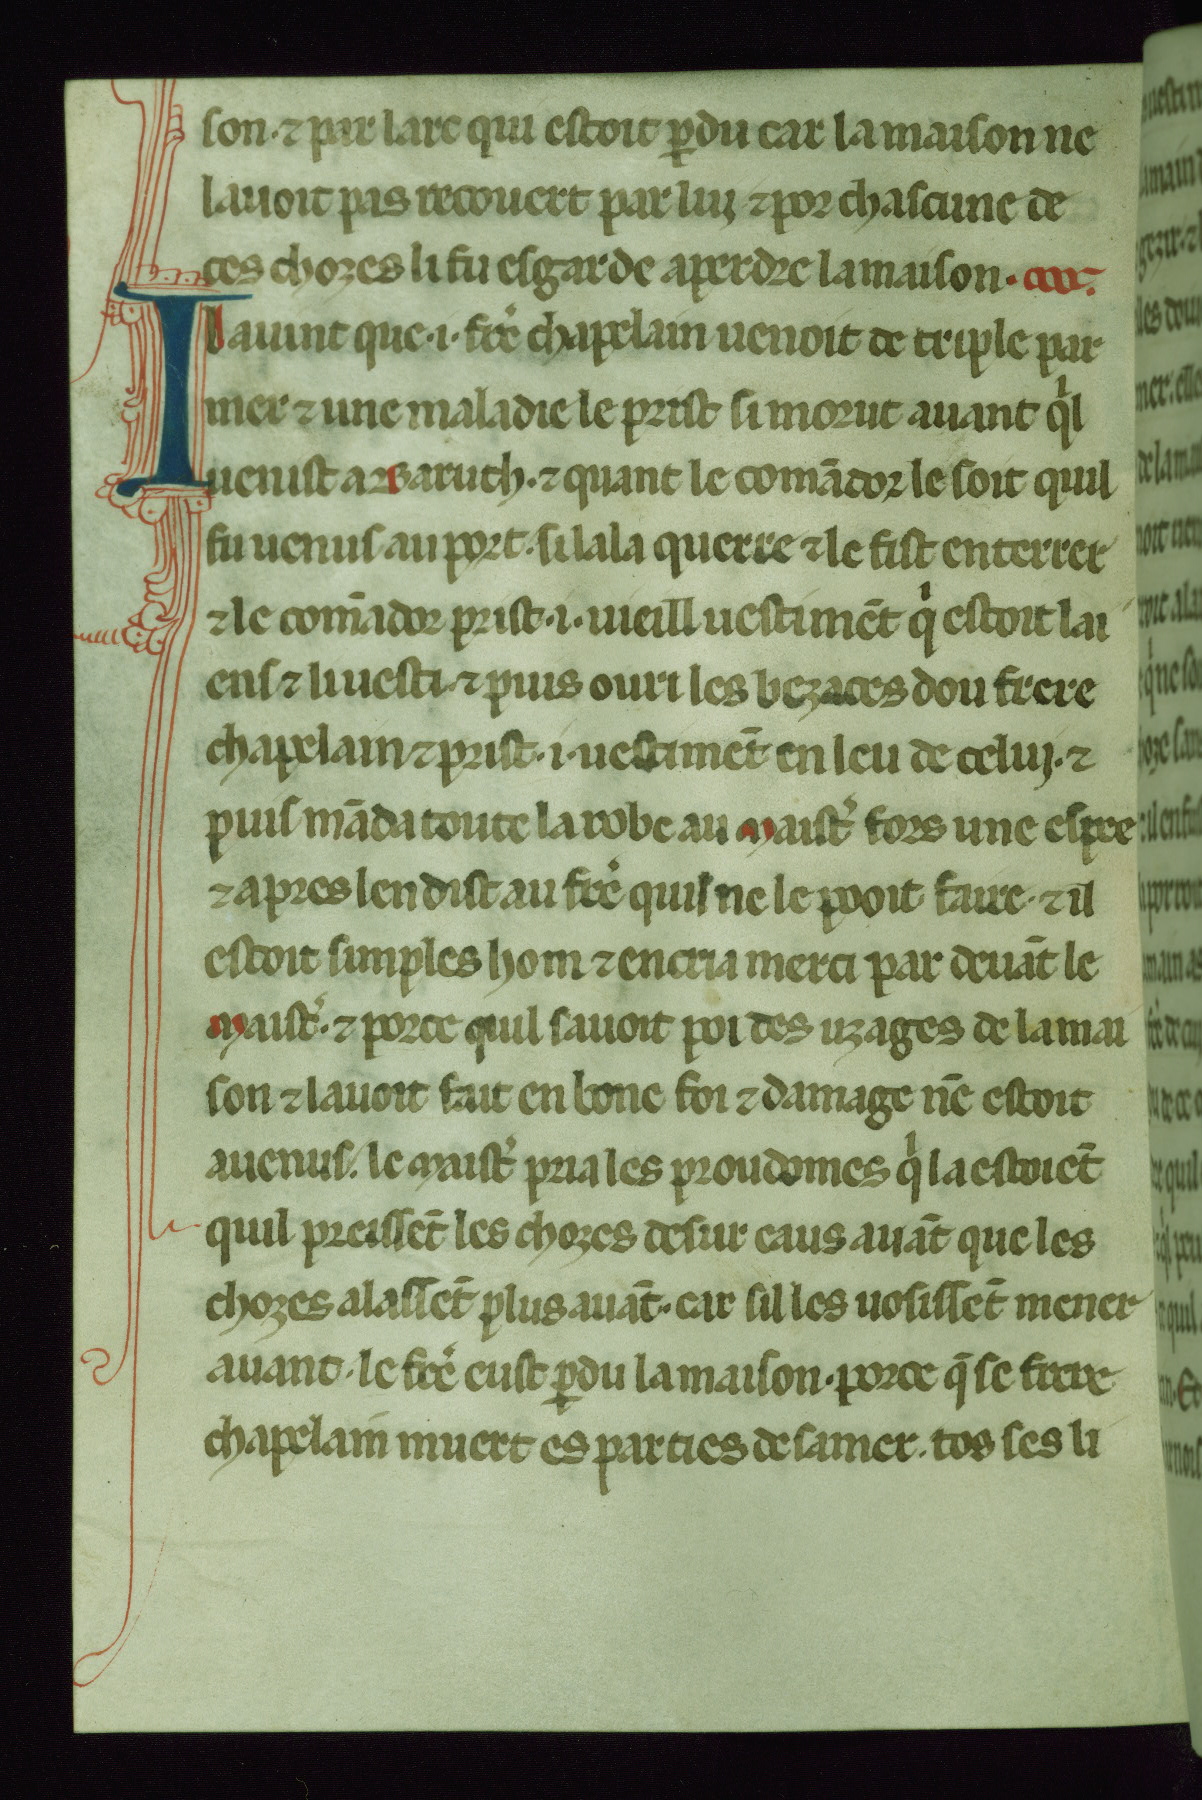 son · ⁊ par larc qui estoit ꝑdu car la maison ne
lauoit pas recouert par luj ⁊ por chascune de
ces chozes li fu esgarde a perdre la maison ·
Il auint que · i · frē chapelain uenoit de triple par
mer ⁊ une maladie le prist si morut auant ql
uenist a Baruth · ⁊ quant le comādor le soit quil
fu uenus au port · si lala querre ⁊ le fist enterrer
⁊ le comādor prist · i · uieill uestimēt q estoit lai
ens ⁊ li uesti · ⁊ puis ouri les bezaces dou frere
chapelain ⁊ prist · i · uestimēt en leu de celuj · ⁊
puis māda toute la robe au maist' fors une espee
⁊ apres len dist au frē quil ne le pooit faire · ⁊ il
estoit simples hom ⁊ en cria merci par deuāt le
maist' · ⁊ porce quil sauoit poi des uzages de la mai
son ⁊ lauoit fait en bone foi ⁊ damage nē estoit
auenus . le maist' pria les proudomes q la estoiēt
quil preissēt les chozes desur eaus auāt que les
chozes alassēt plus auāt · car sil les uosissēt mener
auant · le frē eust ꝑdu la maison · porce q̄ se frere
chapelain muert es parties de sa mer . tos ses li